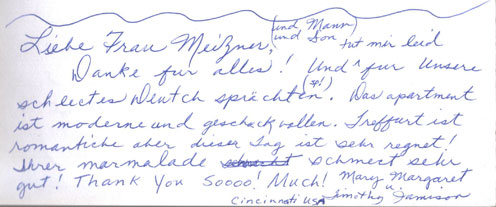 Liebe Frau Meizner, (und Mann und Son
Danke fur alles! Und ^ tut mir leid fur Unsere
schlectes Deutch sprächten (sp!). Das apartment
ist moderne und geschackvollen. Treffurt ist
romantiche aber dieser Tag ist sehr regnet!
Ihrer marmalade schmect sehr
gut! Thank You Soooo! Much! Mary Margaret
Cincinnati USA u. Timothy Jamison